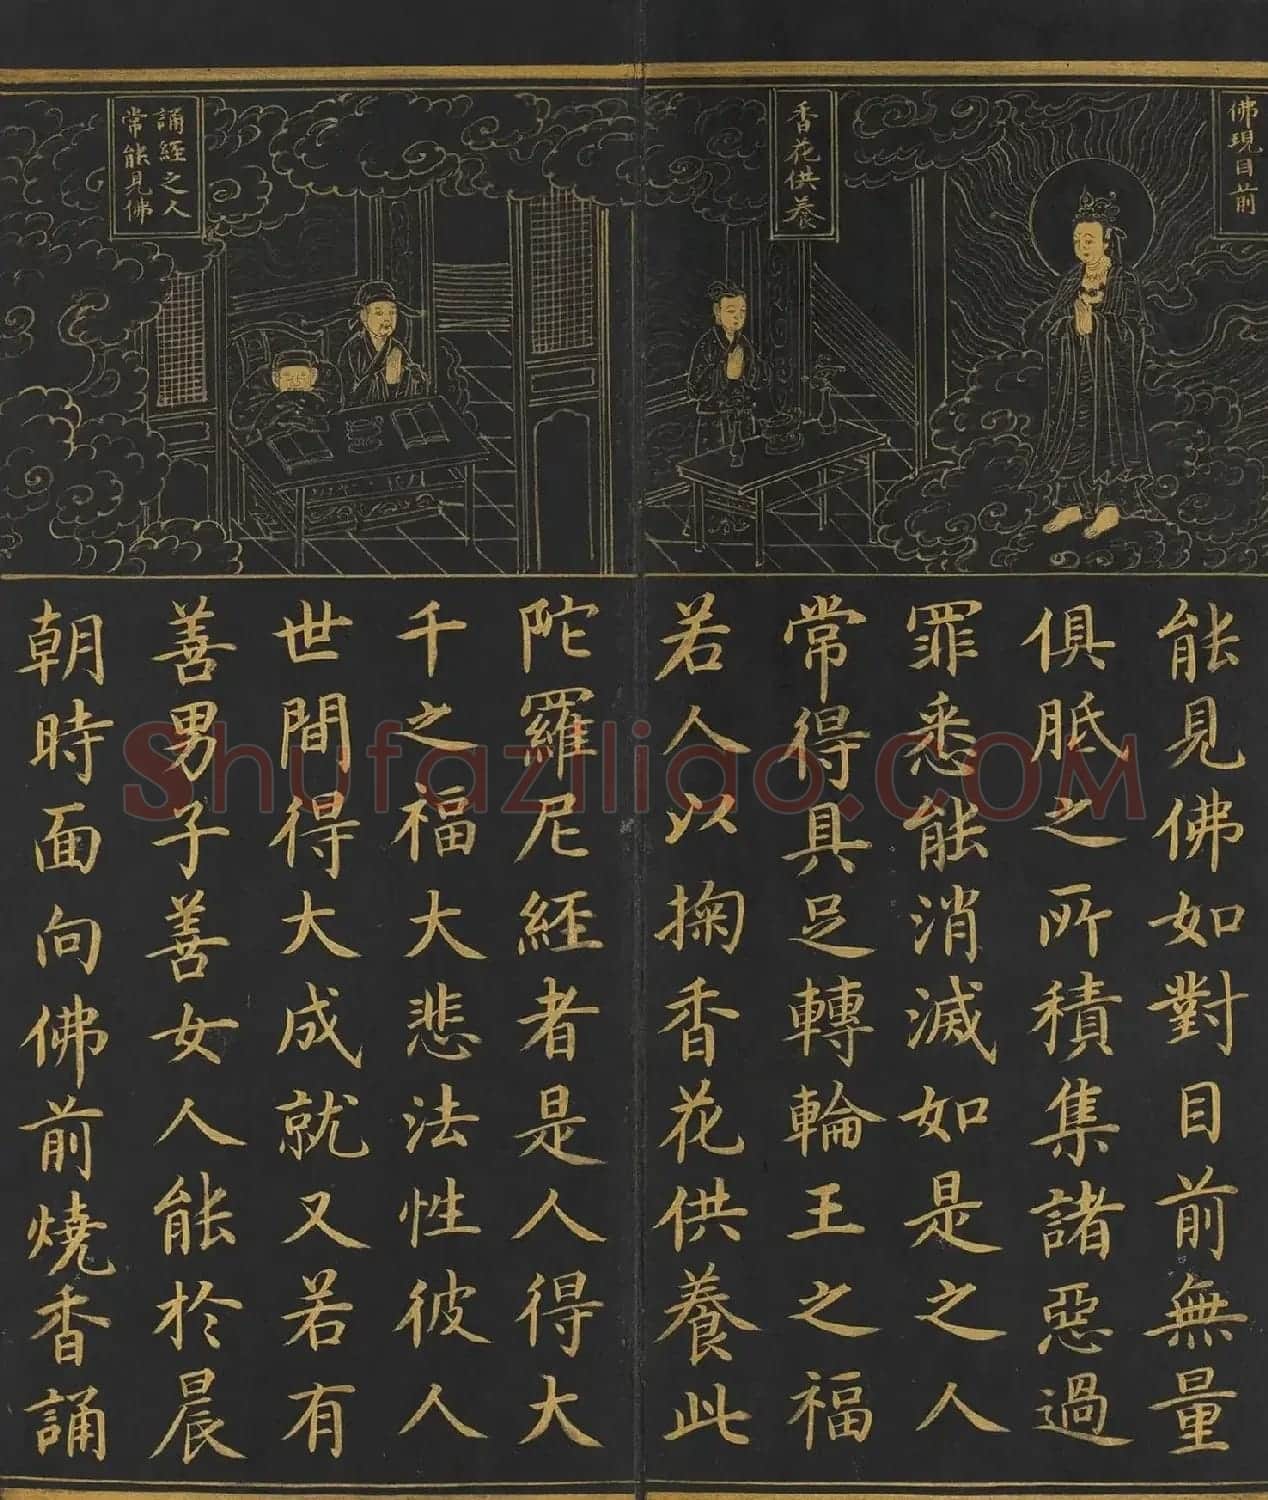 佛現目前
香花供養
誦經之人
常能見佛
能見佛如對目前無量
俱胝之所積集諸惡過
罪悉能消滅如是之人
常得具足轉輪王之福
若人以掬香花供養此
陀羅尼經者是人得大
千之福大悲法性彼人
世間得大成就又若有
善男子善女人能於晨
朝時面向佛前燒香誦
Shufaziliao.COM